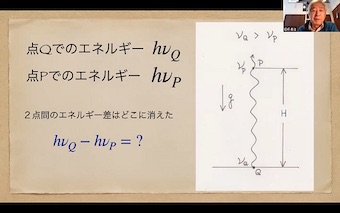 点Qでのエネルギー hν_Q
点Pでのエネルギー hν_P
2点間のエネルギー差はどこに消えた
hν_Q − hν_P = ?
ν_Q > ν_P
ν_P P
g
H
ν_Q
Q